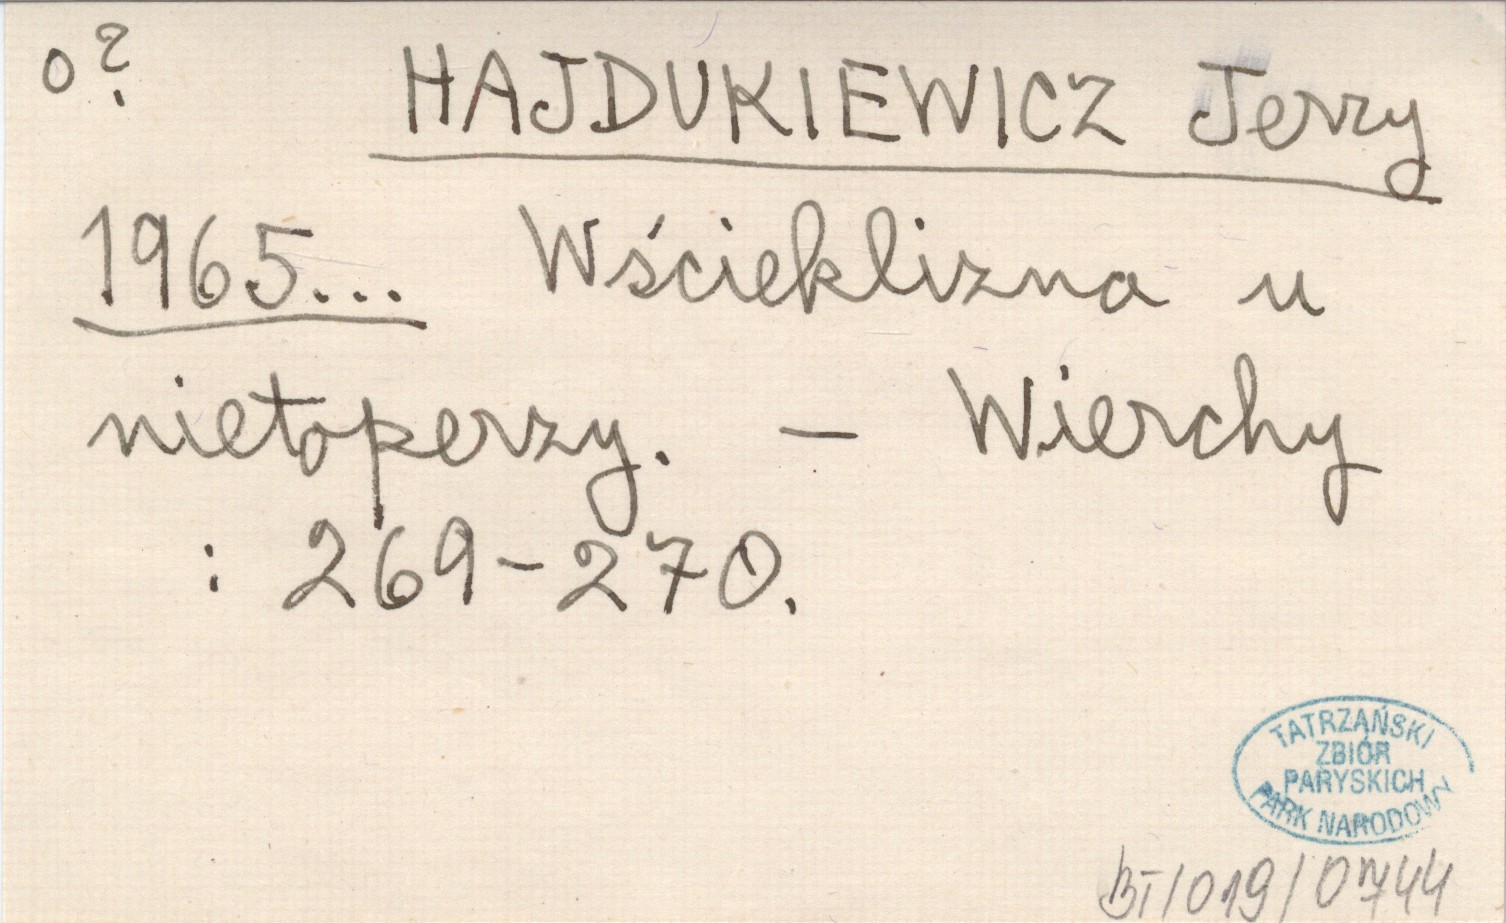 o?
HAJDUKIEWICZ Jerzy
1965... Wścieklizna u
nietoperzy. – Wierchy
: 269-270.
TATRZAŃSKI
ZBIÓR
PARYSKICH
PARK NARODOWY
BT/019/0744